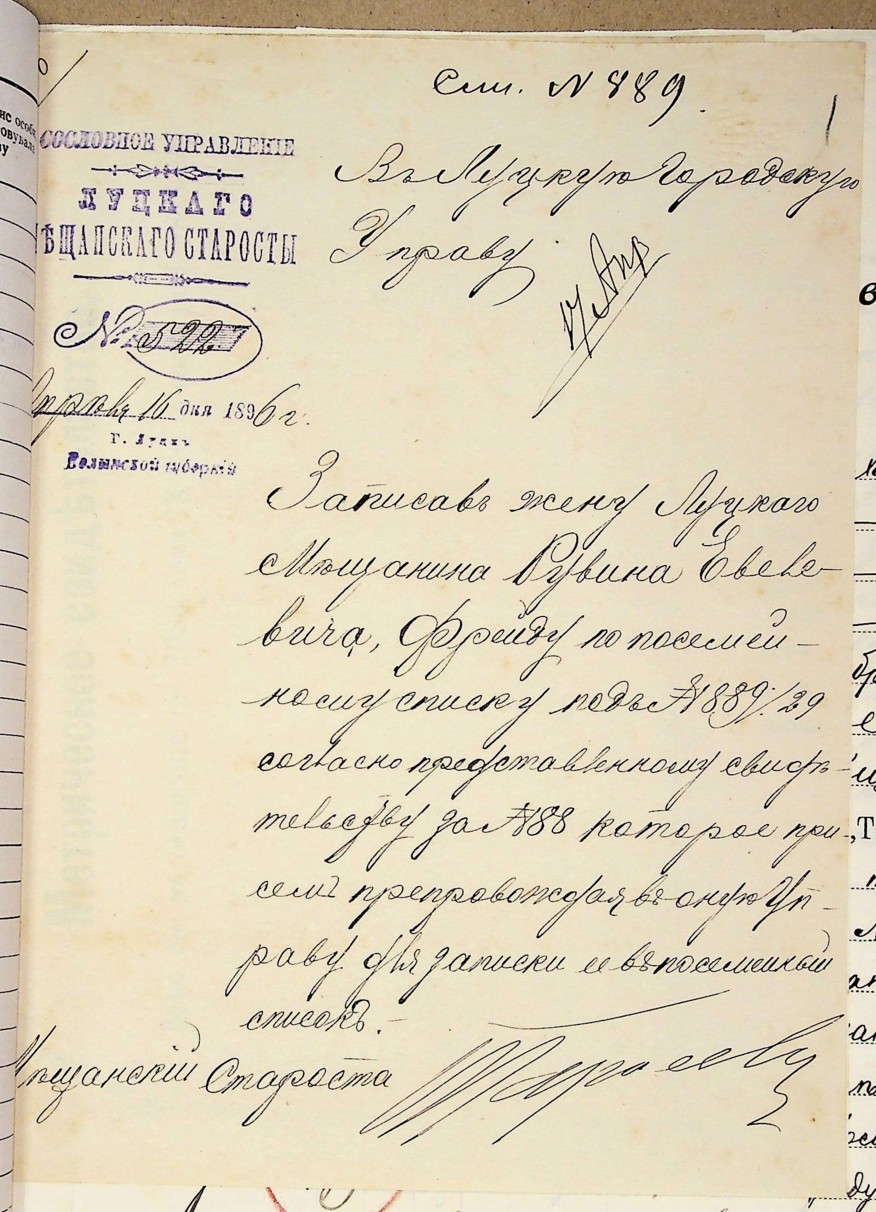 См. № 889
СОСЛОВНОЕ УПРАВЛЕНІЕ
ЛУЦКАГО
МѢЩАНСКАГО СТАРОСТЫ
№ 522
Апрѣля 16 дня 1896 г.
Г. Луцкъ
Волынской губерніи
Въ Луцкую Городскую
Управу
17 Апр
Записавъ жену Луцкаго
Мѣщанина Рувина Евеле-
вича, Фрейду по посемей-
ному списку подъ № 889/29
согласно представленному свидѣ-
тельству за № 88 которое при
семъ препровождая въ оную Уп-
раву для записки ее въ посемейный
списокъ.-
Мѣщанскій Староста